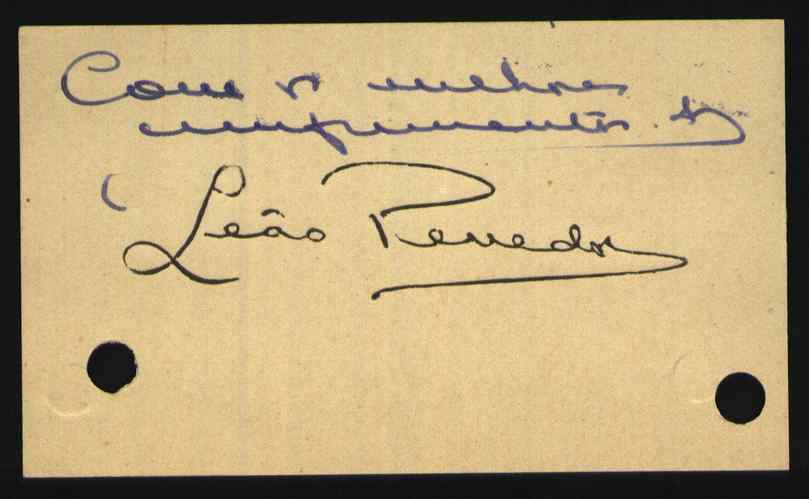 Com os melhores
cumprimentos de
Leão Penedo